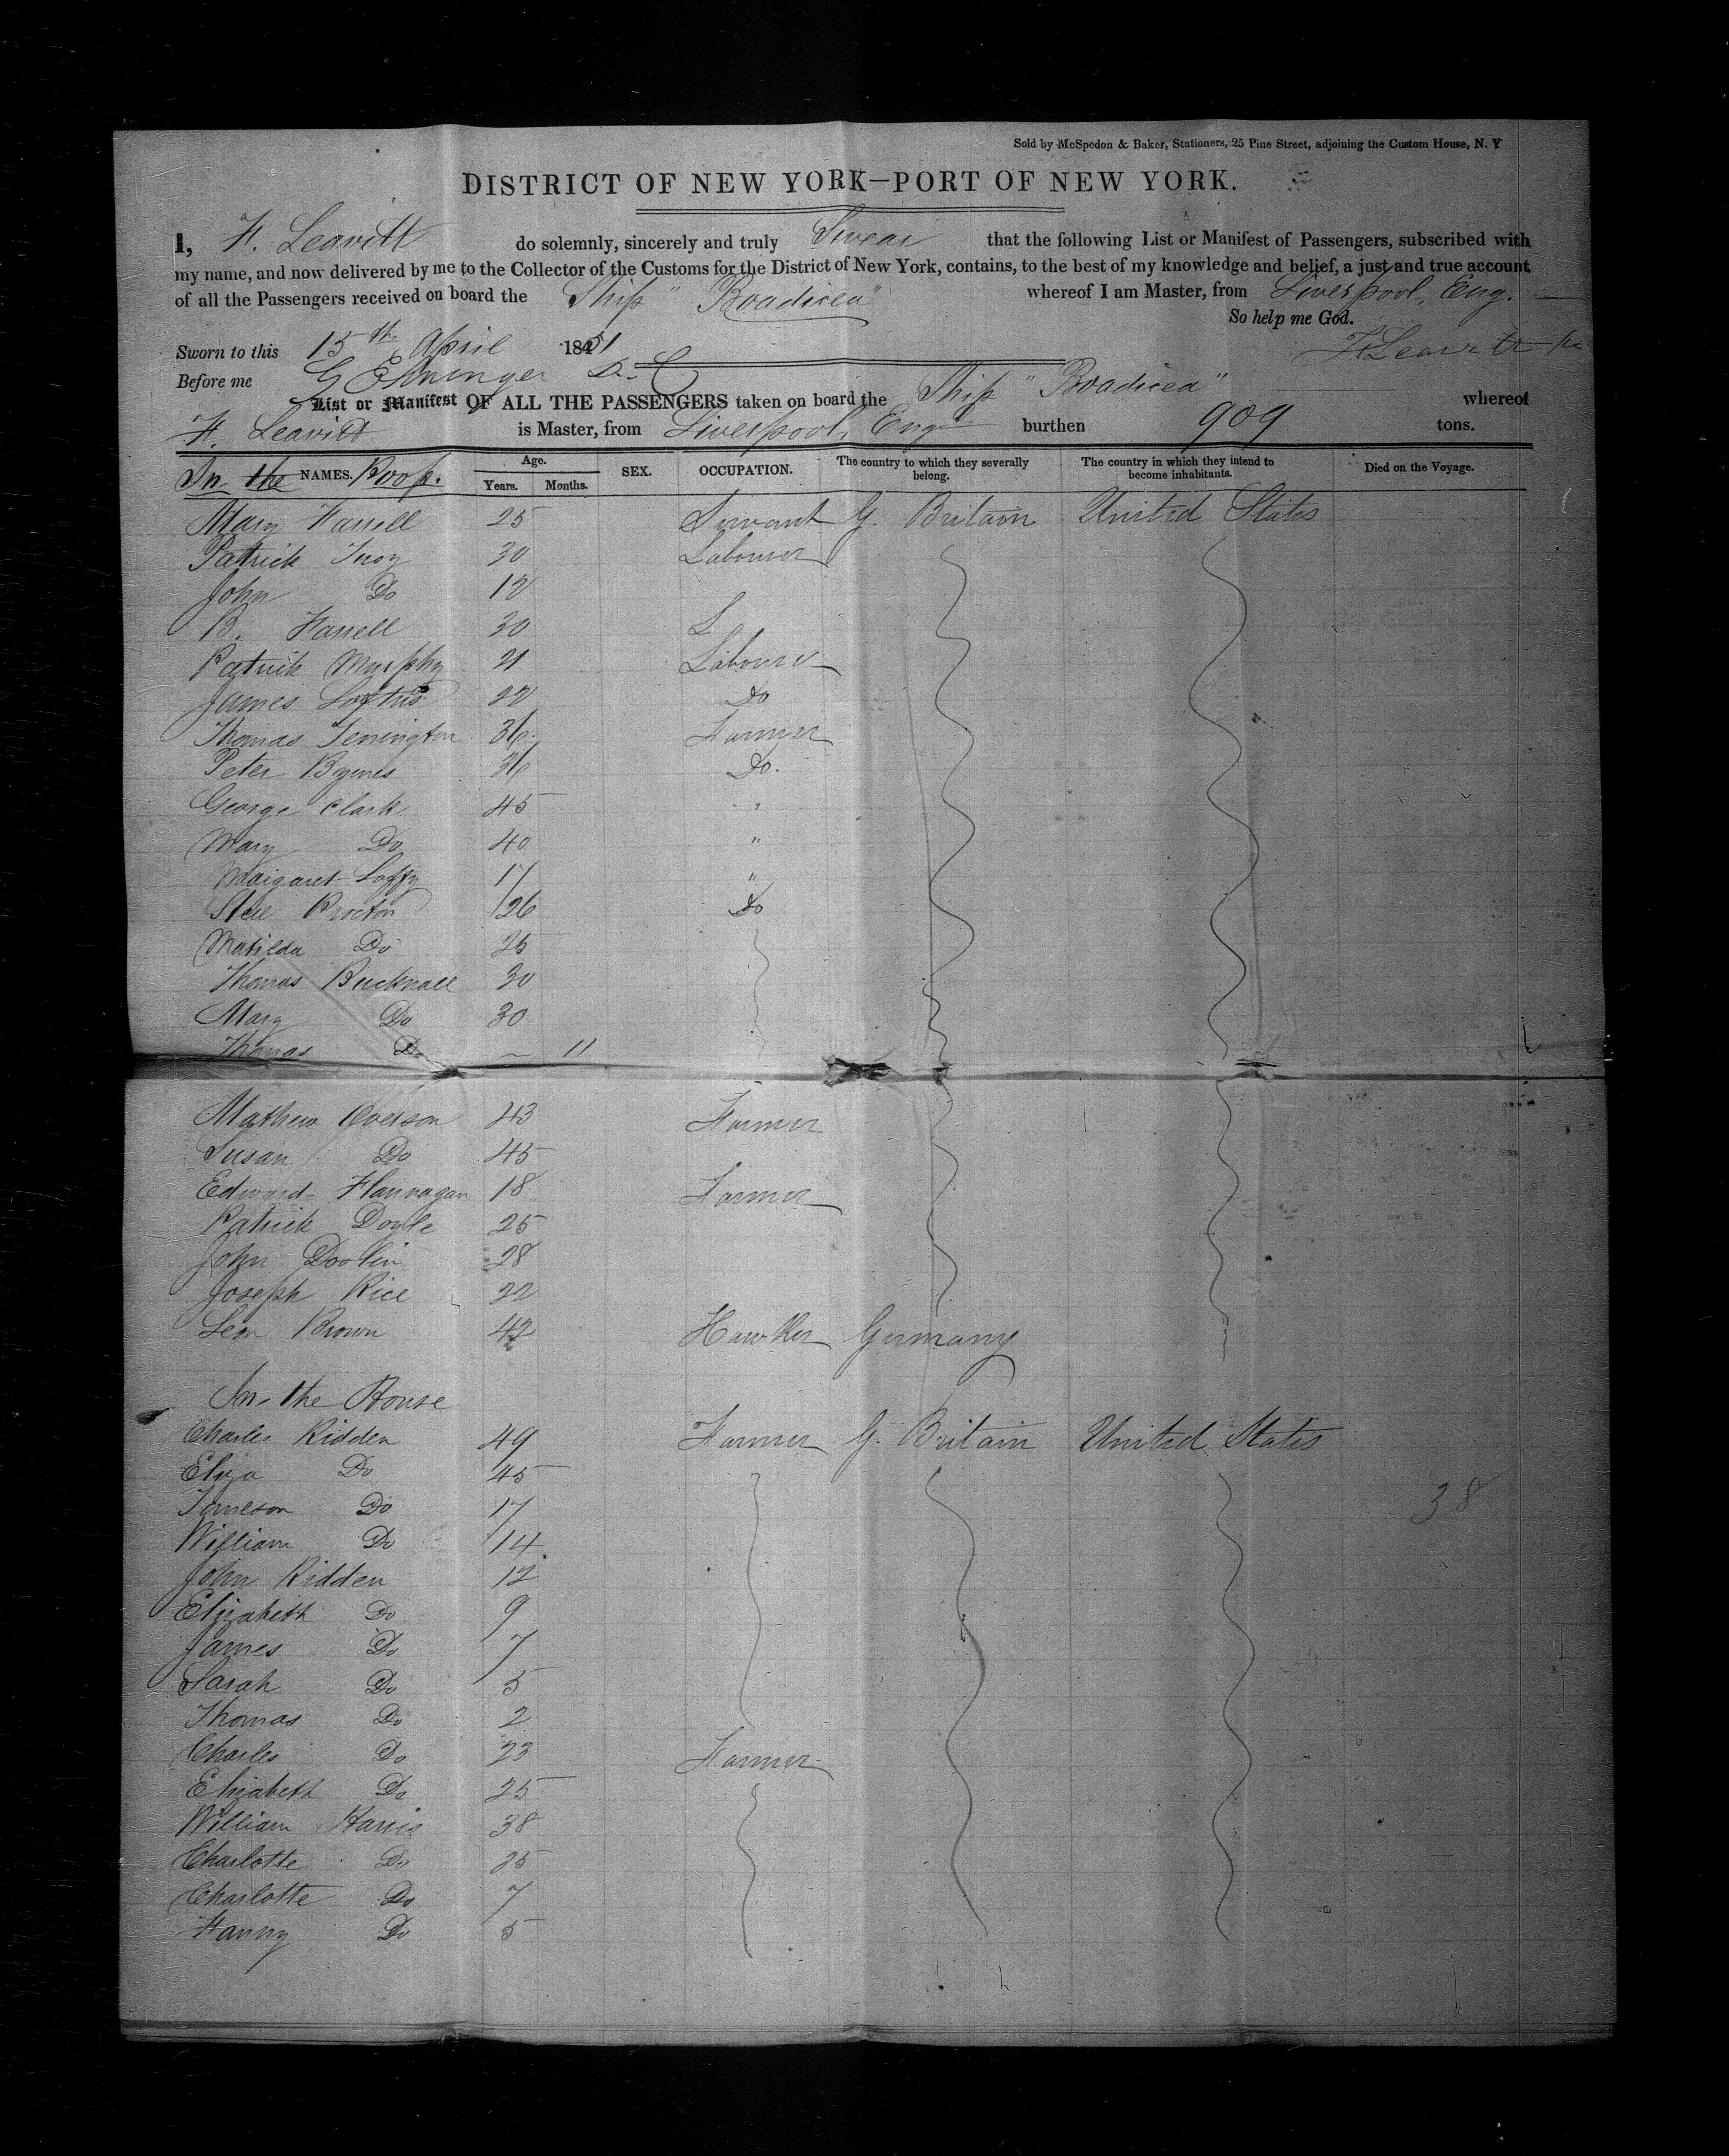 Sold by McSpedon & Baker, Stationers, 25 Pine Street, adjoining the Custom House, N. Y
DISTRICT OF NEW YORK—PORT OF NEW YORK.
I, F. Leavitt do solemnly, sincerely and truly Swear that the following List or Manifest of Passengers, subscribed with
my name, and now delivered by me to the Collector of the Customs for the District of New York, contains, to the best of my knowledge and belief, a just and true account
of all the Passengers received on board the Ship "Boadicea" whereof I am Master, from Liverpool, Eng.
So help me God.
Sworn to this 15th April 1851 F Leavitt
Before me
List or Manifest OF ALL THE PASSENGERS taken on board the Ship "Boadicea" whereof
F. Leavitt is Master, from Liverpool, Eng burthen 909 tons.
In the NAMES. Poop. Age. Years. Months. SEX. OCCUPATION. The country to which they severally belong. The country in which they intend to become inhabitants. Died on the Voyage.
Mary Farrell 25 Servant G. Britain United States
Patrick 30 Labourer
John Do 12
B. Farrell 30 L
Patrick Murphy 21 Labourer
James Loftus 22 Do
Thomas 36 Farmer
Peter Byrnes 36 Do.
George Clark 45 "
Mary Do 40 "
Margaret 17 "
Proctor 26 Do
Matilda Do 25
Thomas Bucknall 30
Mary Do 30
Thomas Do — 11
Mathew 43 Farmer
Susan Do 45
Edward Flannagan 18 Farmer
Patrick Doyle 25
John Doolin 28
Joseph Rice 22
Leon Brown 42 Hawker Germany
In the House
Charles Ridden 49 Farmer G. Britain United States
Eliza Do 45
Jameson Do 17 38
William Do 14
John Ridden 12
Elizabeth Do 9
James Do 7
Sarah Do 5
Thomas Do 2
Charles Do 23 Farmer
Elizabeth Do 25
William Harris 38
Charlotte Do 35
Charlotte Do 7
Fanny Do 5